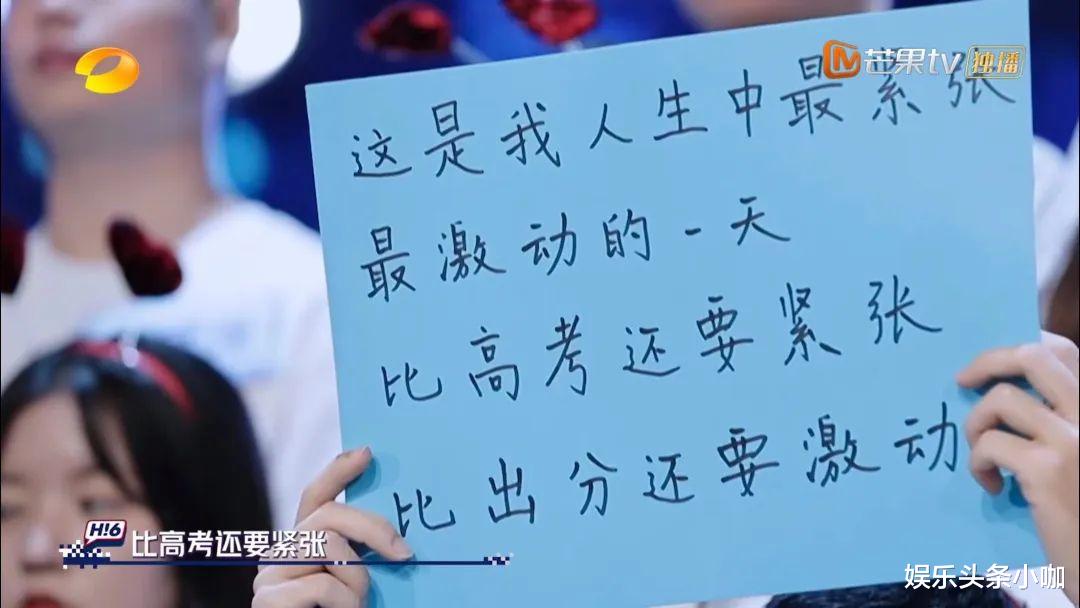 芒果tv 独播
这是我人生中最紧张
最激动的一天
比高考还要紧张
比出分还要激动
H!6
比高考还要紧张
娱乐头条小咖